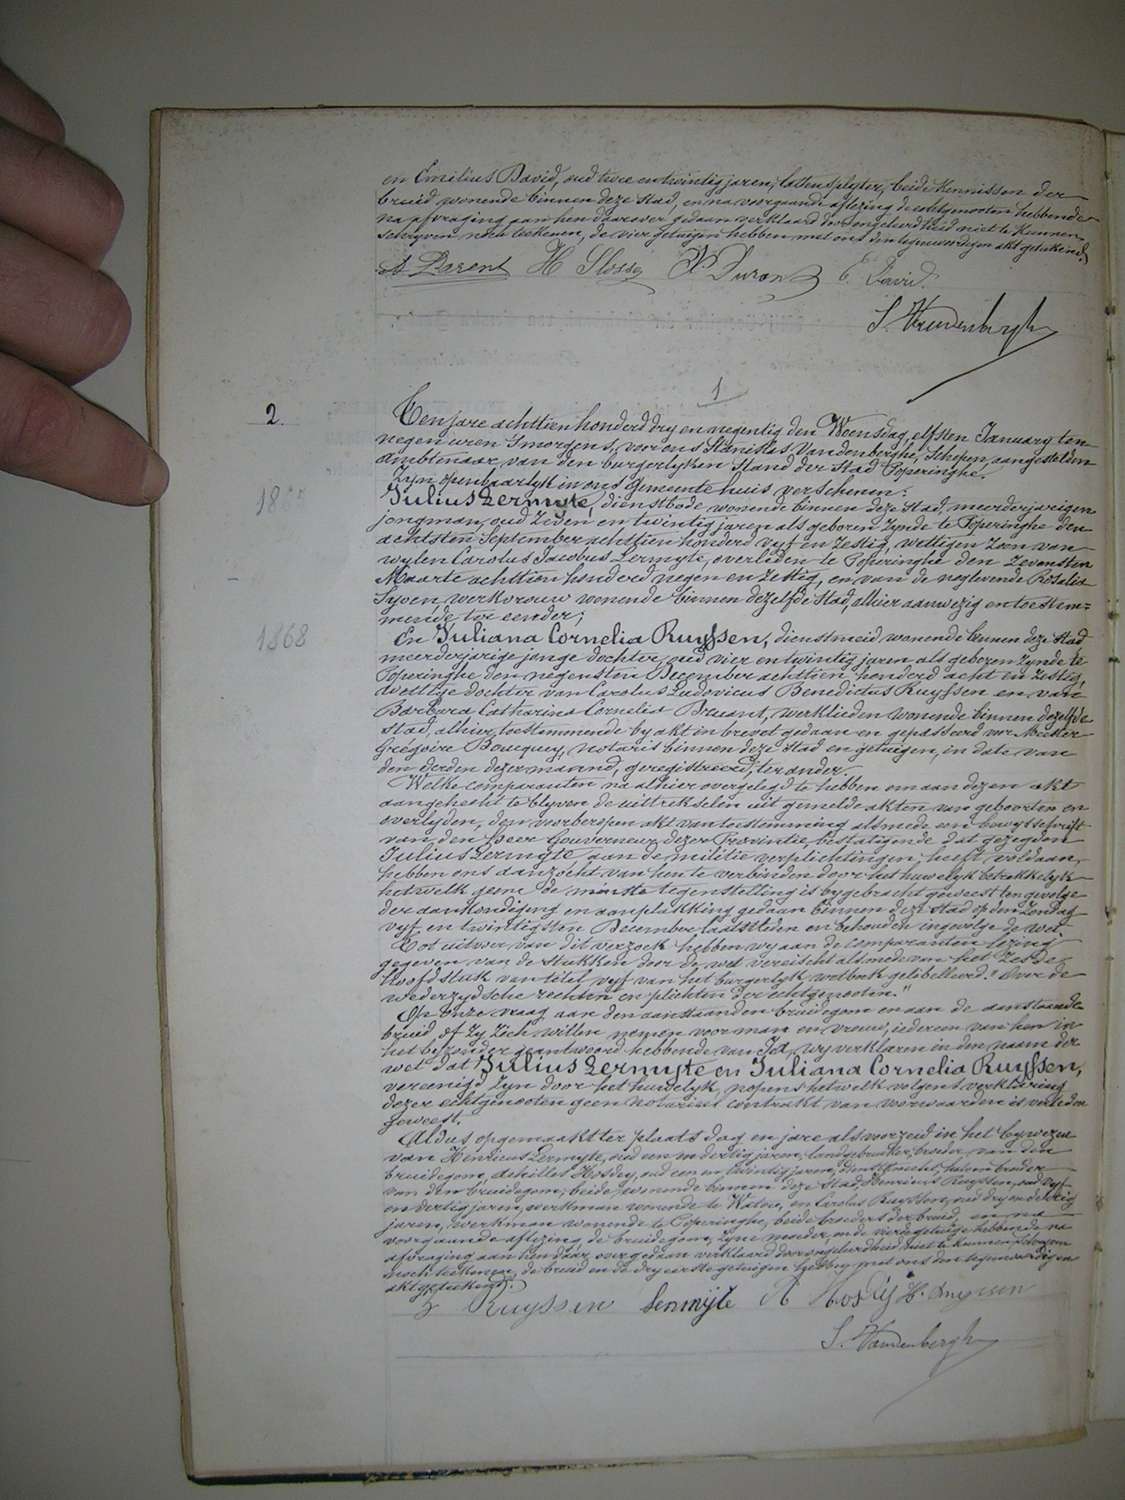 en Emilius David, oud twee en twintig jaren, lattensplyter, beide kennissen der
bruid wonende binnen deze stad, en na voorgaande aflezing de echtgenooten hebbende
na afvraging aan hen daarover gedaan verklaard door ongeleerdheid niet te kunnen
schryven noch teekenen, de vier getuigen hebben met ons den tegenwoordigen akt geteekend.
A Parent H Slosse Duron E. David
S. Vandenberghe
1
2.
Ten jare achttien honderd dry en negentig den Woensdag, elfsten January ten
negen uren 's morgens, voor ons Stanislas Vandenberghe, Schepen, aangestelden
Ambtenaar van den burgerlyken Stand der Stad Poperinghe.
Zyn openbaarlyk in ons Gemeentehuis verschenen:
Julius Lermyte, dienstbode wonende binnen deze Stad, meerderjarigen
jongman, oud zeven en twintig jaren als geboren zynde te Poperinghe den
achtsten September achttien honderd vyf en zestig, wettigen zoon van
wylen Carolus Jacobus Lermyte, overleden te Poperinghe den zevensten
Maarte achttien honderd negen en zestig, en van de nog levende Rosalia
Syoen, werkvrouw wonende binnen dezelfde Stad, alhier aanwezig en toestem=
mende ter eender;
1868
En Juliana Cornelia Ruyssen, dienstmeid wonende binnen deze Stad
meerderjarige jonge dochter, oud vier en twintig jaren als geboren zynde te
Poperinghe den negensten December achttien honderd acht en zestig,
wettige dochter van Carolus Ludovicus Benedictus Ruyssen en van
Barbara Catharina Cornelia Bruant, werklieden wonende binnen dezelfde
Stad, alhier toestemmende by akt in brevet gedaan en gepasseerd voor Meester
Grégoire Boucquey, notaris binnen deze Stad en getuigen, in date van
den derden dezer maand, geregistreerd, ter ander.
Welke comparanten na alhier overgelegd te hebben om aan dezen akt
aangehecht te blyven de uittrekselen uit gemelde akten van geboorten en
overlyden, den voorberoepen akt van toestemming alsmede een bewysschrift
van den Heer Gouverneur dezer Provintie, bestatigende dat gezegden
Julius Lermyte aan de militie verplichtingen heeft voldaan,
hebben ons aanzocht van hen te verbinden door het huwelyk betrekkelyk
hetwelk geene de minste tegenstelling is bygebracht geweest ten gevolge
der aankondiging en aanplakking gedaan binnen deze Stad op den Zondag
vyf en twintigsten December laatstleden en behouden ingevolge de wet.
Tot uitvoer van dit verzoek hebben wy aan de comparanten lezing
gegeven van de stukken door de wet vereischt alsmede van het Zesde
hoofdstuk van titel vyf van het burgerlyk wetboek gelibelleerd: "Over de
wederzydsche rechten en plichten der echtgenooten."
Op onze vraag aan den aanstaanden bruidegom en aan de aanstaande
bruid of zy zich willen nemen voor man en vrouw, iedereen van hen in
het byzonder geantwoord hebbende van Ja, wy verklaren in den naam der
wet dat Julius Lermyte en Juliana Cornelia Ruyssen,
vereenigd zyn door het huwelyk, nopens hetwelk volgens verklaring
dezer echtgenooten geen notarieel contrakt van voorwaarden is verleden
geweest.
Aldus opgemaakt ter plaats dag en jare als voorzeid in het bywezen
van Henricus Lermyte, oud een en dertig jaren, landgebruiker, broeder van den
bruidegom, Achilles Hosdey, oud een en twintig jaren, dienstknecht, halven broeder
van den bruidegom, beide wonende binnen deze Stad, Henricus Ruyssen, oud vyf
en dertig jaren, werkman wonende te Watou, en Carolus Ruyssen, oud dry en dertig
jaren, werkman wonende te Poperinghe, beide broeders der bruid, en na
voorgaande aflezing de bruidegom, zyne moeder, en de vierde getuige hebbende na
afvraging aan hen daar over gedaan verklaard door ongeleerdheid niet te kunnen schryven
noch teekenen, de bruid en de dry eerste getuigen hebben met ons den tegenwoordigen
akt geteekend.
J Ruyssen Lermyte A Hosdey H. Ruyssen
S. Vandenberghe